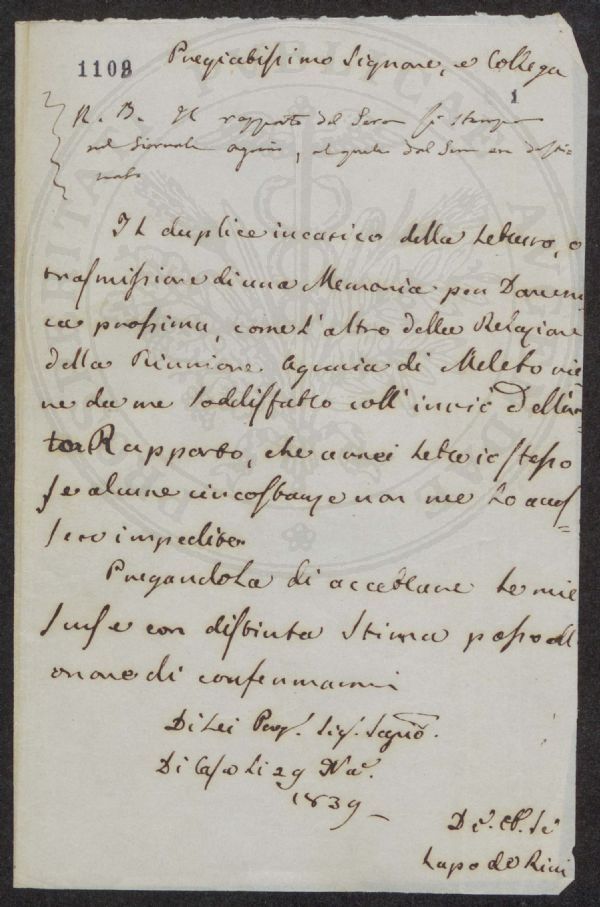 1108
Pregiabissimo Signore, e Collega
1
N. B. Il rapporto del Seren si stampa
nel Giornale agrario, al quale dal Sim era desti=
nato
Il duplice incarico della Lettura, o
trasmissione di una Memoria per Domeni
ca prossima, come l'altro della Relazione
della Riunione Agraria di Meleto vie
ne da me soddisfatto coll'invio dell'un
to Rapporto, che avrei letto io stesso
se alcune circostanze non me lo aves
sero impedito
Pregandola di accettare le mie
scuse con distinta stima passo all
onore di confermarmi
Di Lei Preg. Sig. Segrio.
Di Casa li 29 Nov.
1839
Dev. Obb. Se
Lapo de Ricci